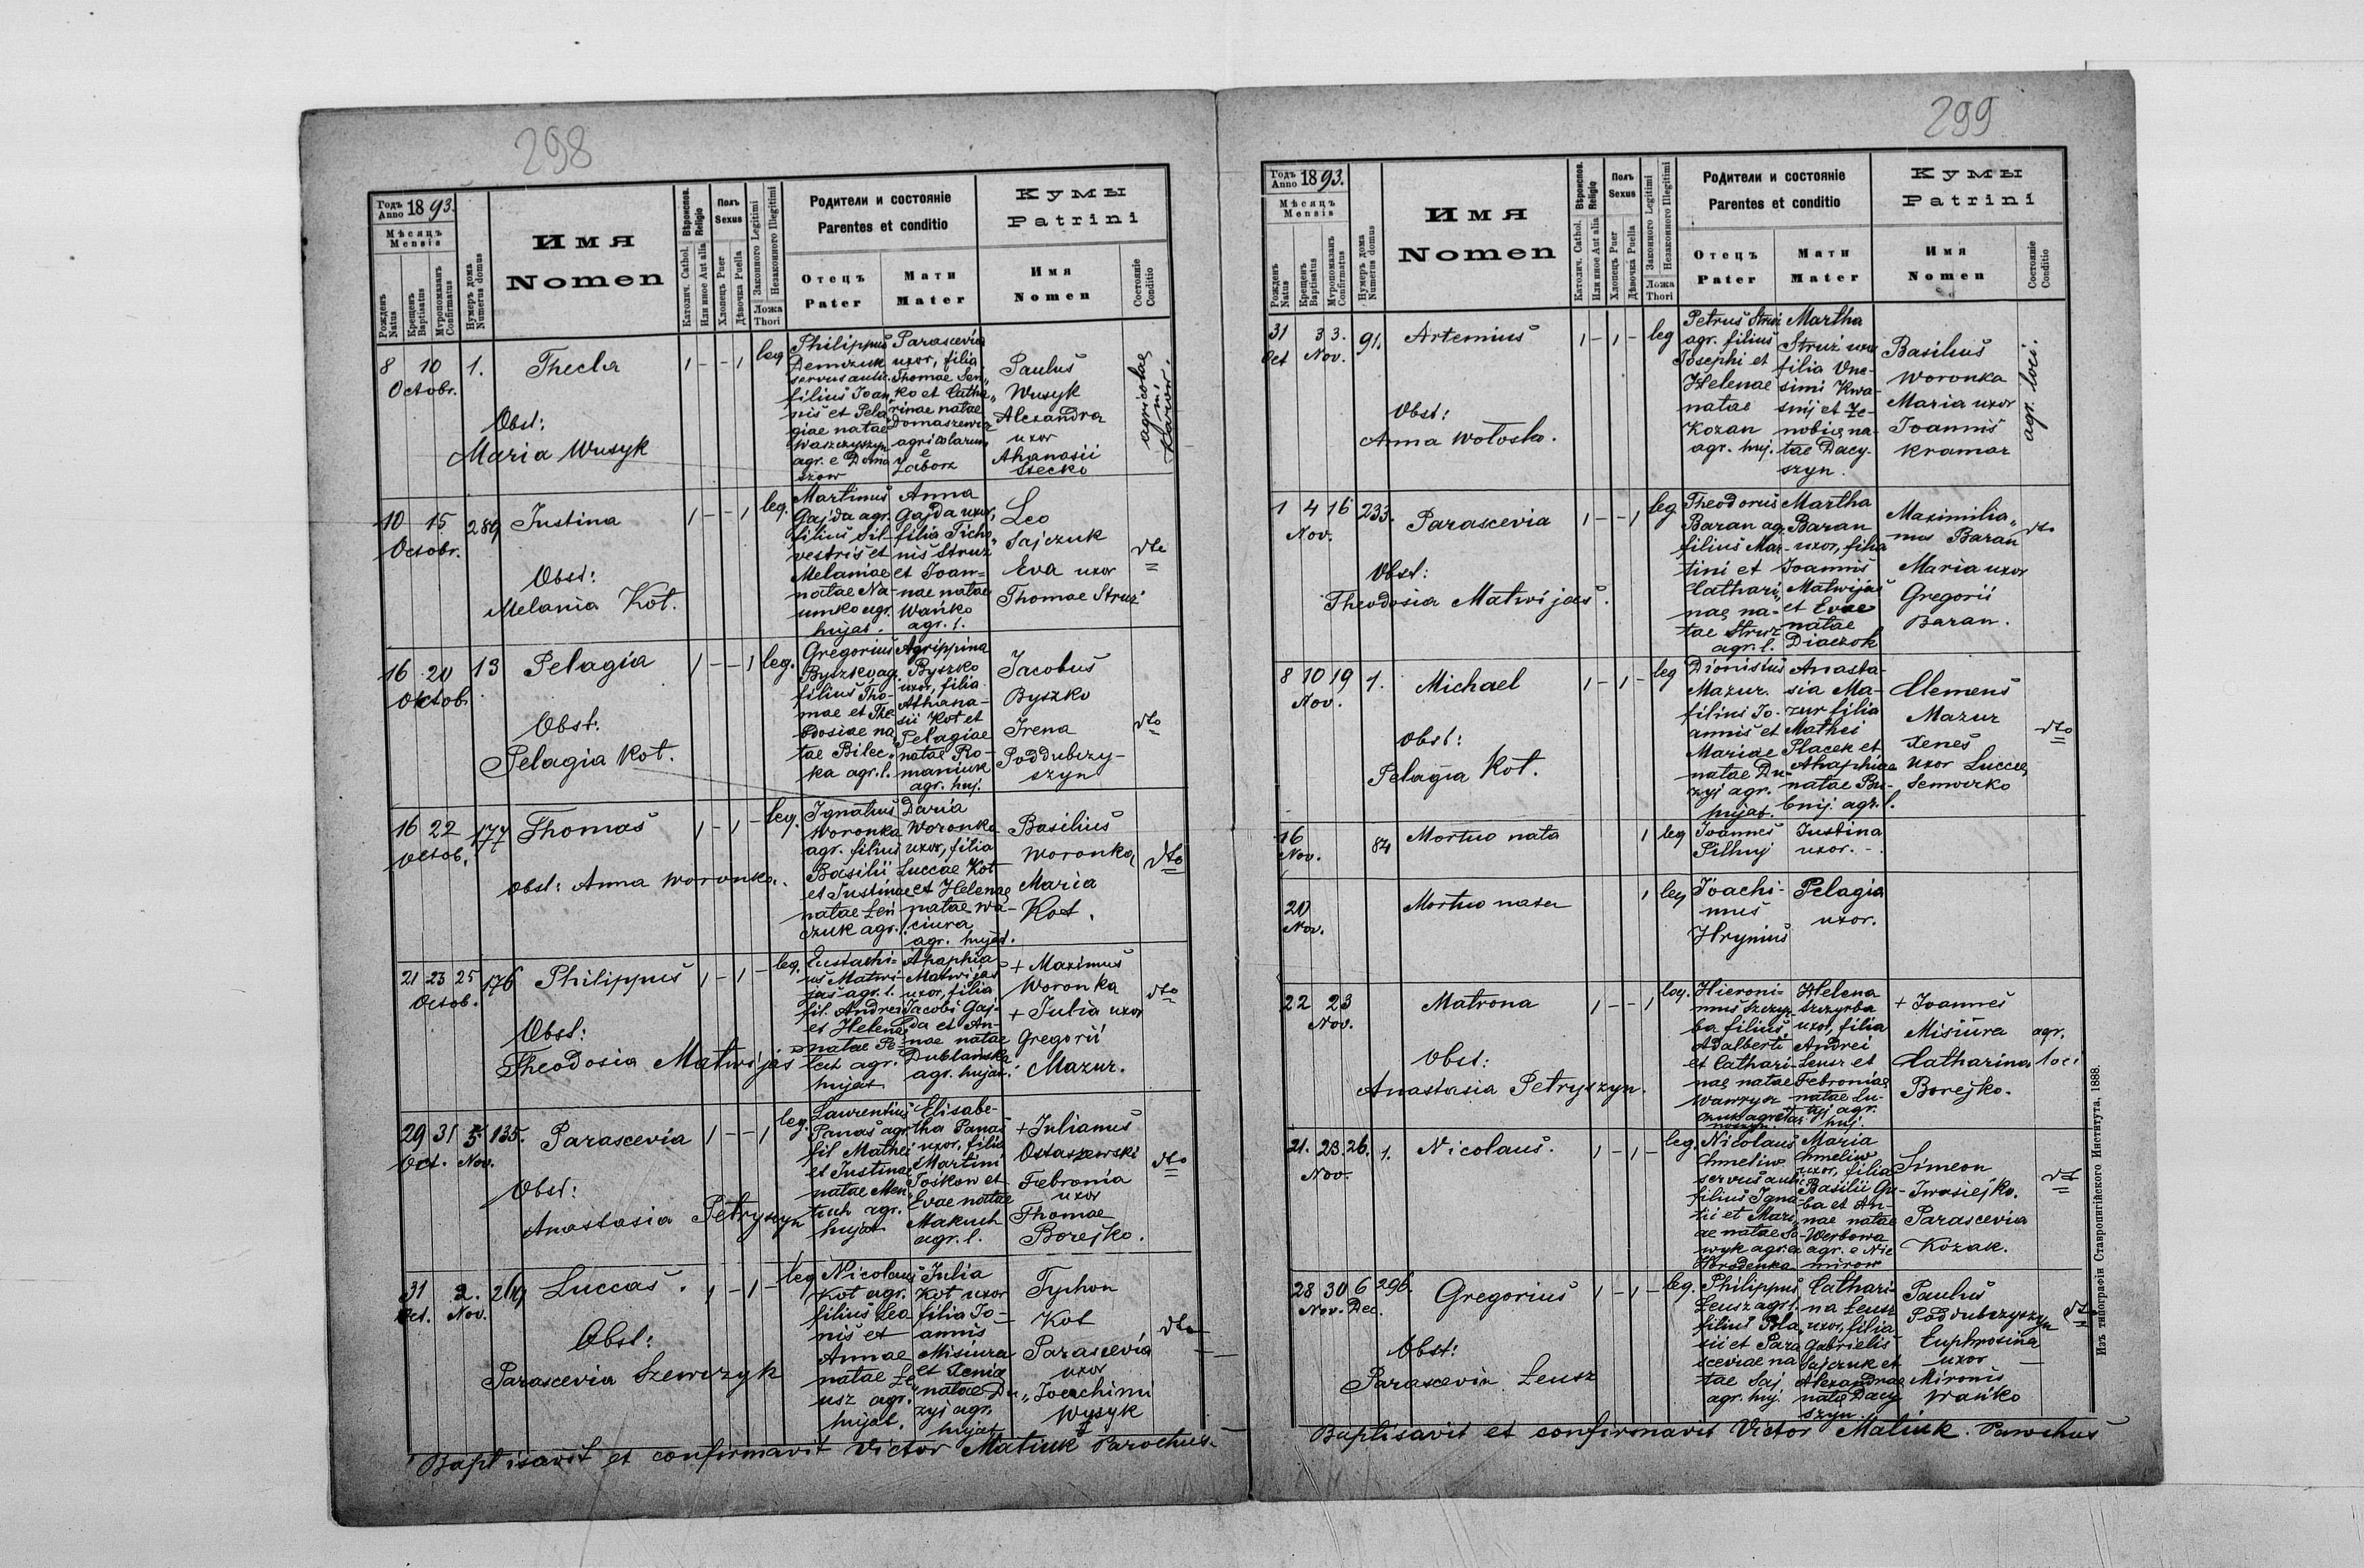 298
Годъ Anno 1893.
Мѣсяцъ Mensis
Рожденъ Natus
Крещенъ Baptisatus
Мѵропомазанъ Confirmatus
Нумеръ дома Numerus domus
Имя
Nomen
Вѣроиспов. Religio
Католич. Cathol.
Или иное Aut alia
Полъ Sexus
Хлопецъ Puer
Дѣвочка Puella
Законного Legitimi
Незаконного Illegitimi
Ложа Thori
Родители и состояніе
Parentes et conditio
Отецъ
Pater
Мати
Mater
Кумы
Patrini
Имя
Nomen
Состояніе Conditio
8 10 1. Thecla 1 - - 1 leg
Octobr.
Obst:
Maria Wusyk
Philippus
Demczuk
servus aulic.
filius Joan
nis et Pela
giae natae
Waszczyszyn
agr. e Doma
szow
Parascevia
uxor, filia
Thomae Sen„
ko et Catha„
rinae natae
Domaszewicz
agricolarum
e
Zaborz
Paulus
Wusyk
Alexandra
uxor
Athanasii
Ssecko
agricolae
in
Karow.
10 15 289 Justina 1 - - 1 leg.
Octobr.
Obst:
Melania Kot.
Martinus
Gajda agr.
filius Sil-
vestris et
Melaniae
natae Na-
umko agr.
hujat.
Anna
Gajda uxor,
filia Ticho„
nis Struz
et Joan=
nae natae
Wańko
agr. l.
Leo
Sajczuk
Eva uxor
Thomae Struz
dto
16 20 13 Pelagia 1 - - 1 leg.
Oktob.
Obst:
Pelagia Kot.
Gregorius
Byszko ag.
filius Tho-
mae et The
odosiae na
tae Bilec„
ka agr. l.
Agrippina
Byszko
uxor, filia
Athana-
sii Kot et
Pelagiae
natae Ro-
maniuk
agr. huj.
Jacobus
Byszko
Irena
Poddubczy-
szyn
dto
16 22 177 Thomas 1 - 1 - leg.
Octob.
obst: Anna Woronka.
Ignatius
Woronka
agr. filius
Basilii
et Justinae
natae Leń
czuk agr. l.
Daria
Woronka
uxor, filia
Luccae Kot
et Helenae
natae Wa-
ciura
agr. hujat.
Basilius
Woronka
Maria
Kot.
dto
21 23 25 176 Philippus 1 - 1 - leg.
Octob.
Obst:
Theodosia Matwijas
Eustachi=
us Matwi-
jas agr. l.
fil. Andrei
et Helenae
natae Pe-
lect agr.
hujat
Ahaphia
Matwijas
uxor, filia
Jacobi Gaj-
da et An-
nae natae
Dublańska
agr. hujat.
+ Maximus
Woronka
+ Julia uxor
Gregorii
Mazur.
dto
29 31 5 135. Parascevia 1 - - 1 leg.
Oct. Nov.
Obst:
Anastasia Petryszyn
Laurentius
Panas agr.
fil Mathei
et Justinae
natae Men
tuch agr.
hujat
Elisabe-
tha Panas
uxor, filia
Martini
Tośkow et
Evae natae
Makuch
agr. l.
+ Julianus
Ostaszewski
Febronia
uxor
Thomae
Borejko.
dto
31 2. 269 Luccas. 1 - 1 - leg
Oct. Nov.
Obst:
Parascevia Szewczyk
Nicolaus
Kot agr.
filius Leo
nis et
Annae
natae Łe
usz agr.
hujat.
Julia
Kot uxor
filia Jo-
annis
Misiura
et Xenia
natae Du„
zyj agr.
hujat
Typhon
Kot
Parascevia
uxor
Joachimi
Wysyk
dto
Baptisavit et confirmavit Victor Matiuk Parochus.
299
Годъ Anno 1893.
Мѣсяцъ Mensis
Рожденъ Natus
Крещенъ Baptisatus
Мѵропомазанъ Confirmatus
Нумеръ дома Numerus domus
Имя
Nomen
Вѣроиспов. Religio
Католич. Cathol.
Или иное Aut alia
Полъ Sexus
Хлопецъ Puer
Дѣвочка Puella
Законного Legitimi
Незаконного Illegitimi
Ложа Thori
Родители и состояніе
Parentes et conditio
Отецъ
Pater
Мати
Mater
Кумы
Patrini
Имя
Nomen
Состояніе Conditio
31 3 3. 91. Artemius 1 - 1 - leg
Oct Nov.
Obst:
Anna Wołosko.
Petrus Struz
agr. filius
Josephi et
Helenae
natae
Kozan
agr. huj.
Martha
Struz uxor
filia One-
simi Kwa-
snij et Ze-
nobię na-
tae Dacy-
szyn.
Basilius
Woronka
Maria uxor
Joannis
Kramar
agr. loci.
1 4 16 233. Parascevia 1 - - 1 leg
Nov.
Obst:
Theodosia Matwijas.
Theodorus
Baran ag.
filius Mar-
tini et
Cathari„
nae na-
tae Struz
agr. l.
Martha
Baran
uxor, filia
Joannis
Matwijas
et Evae
natae
Diaczok
Maximilia„
nus Baran
Maria uxor
Gregorii
Baran.
dto
8 10 19 1. Michael 1 - 1 - leg
Nov.
Obst:
Pelagia Kot.
Dionisius
Mazur.
filius Jo-
annis et
Mariae
natae Du-
zyj agr.
hujat.
Anasta-
sia Ma-
zur filia
Mathei
Placek et
Ahaphiae
natae Bu-
bnij. agr. l.
Clemens
Mazur
Xenes
uxor Luccae
Semerko
dto
16 84 Mortuo nata 1 leg
Nov.
Joannes
Pilhuj
Justina
uxor.
20 Mortuo nata 1 leg
Nov.
Joachi-
mus
Hrynius
Pelagia
uxor.
22 23 Matrona 1 - - 1 leg.
Nov.
Obst:
Anastasia Petryszyn.
Hieroni-
mus Szczyr
ba filius
Adalberti
et Cathari-
nae natae
Wawrysz
czuk agr.
Helena
Szczyrba
uxor, filia
Andrei
Leusz et
Febroniae
natae Lu-
agr.
huj.
+ Joannes
Misiura
Catharina
Borejko.
agr.
loci
21. 23. 26. 1. Nicolaus. 1 - 1 - leg.
Nov.
Nicolaus
Chmeliw
servus aulic
filius Igna-
tii et Mari„
ae natae Sa-
wyk agr. e
Horodenka
Maria
Chmeliw
uxor, filia
Basilii Gu-
ba et An-
nae natae
Werbowa
agr. e Nie
mirow
Simeon
Iwasiejko.
Parascevia
Kozak.
dto
28 30 6 296. Gregorius 1 - 1 - leg.
Nov. Dec.
Obst:
Parascevia Łeusz
Philippus
Łeusz agr. l.
filius Bla„
sii et Para
sceviae na
tae Saj
agr. huj.
Cathari-
na Łeusz
uxor, filia
Gabrielis
Sajczuk et
Alexandrae
natae Dacy
szyn.
Paulus
Poddubczyszyn
Euphrosina
uxor
Mironis
Wańko
dto
Baptisavit et confirmavit Victor Matiuk. Parochus
Изъ типографіи Ставропигійского Института. 1888.